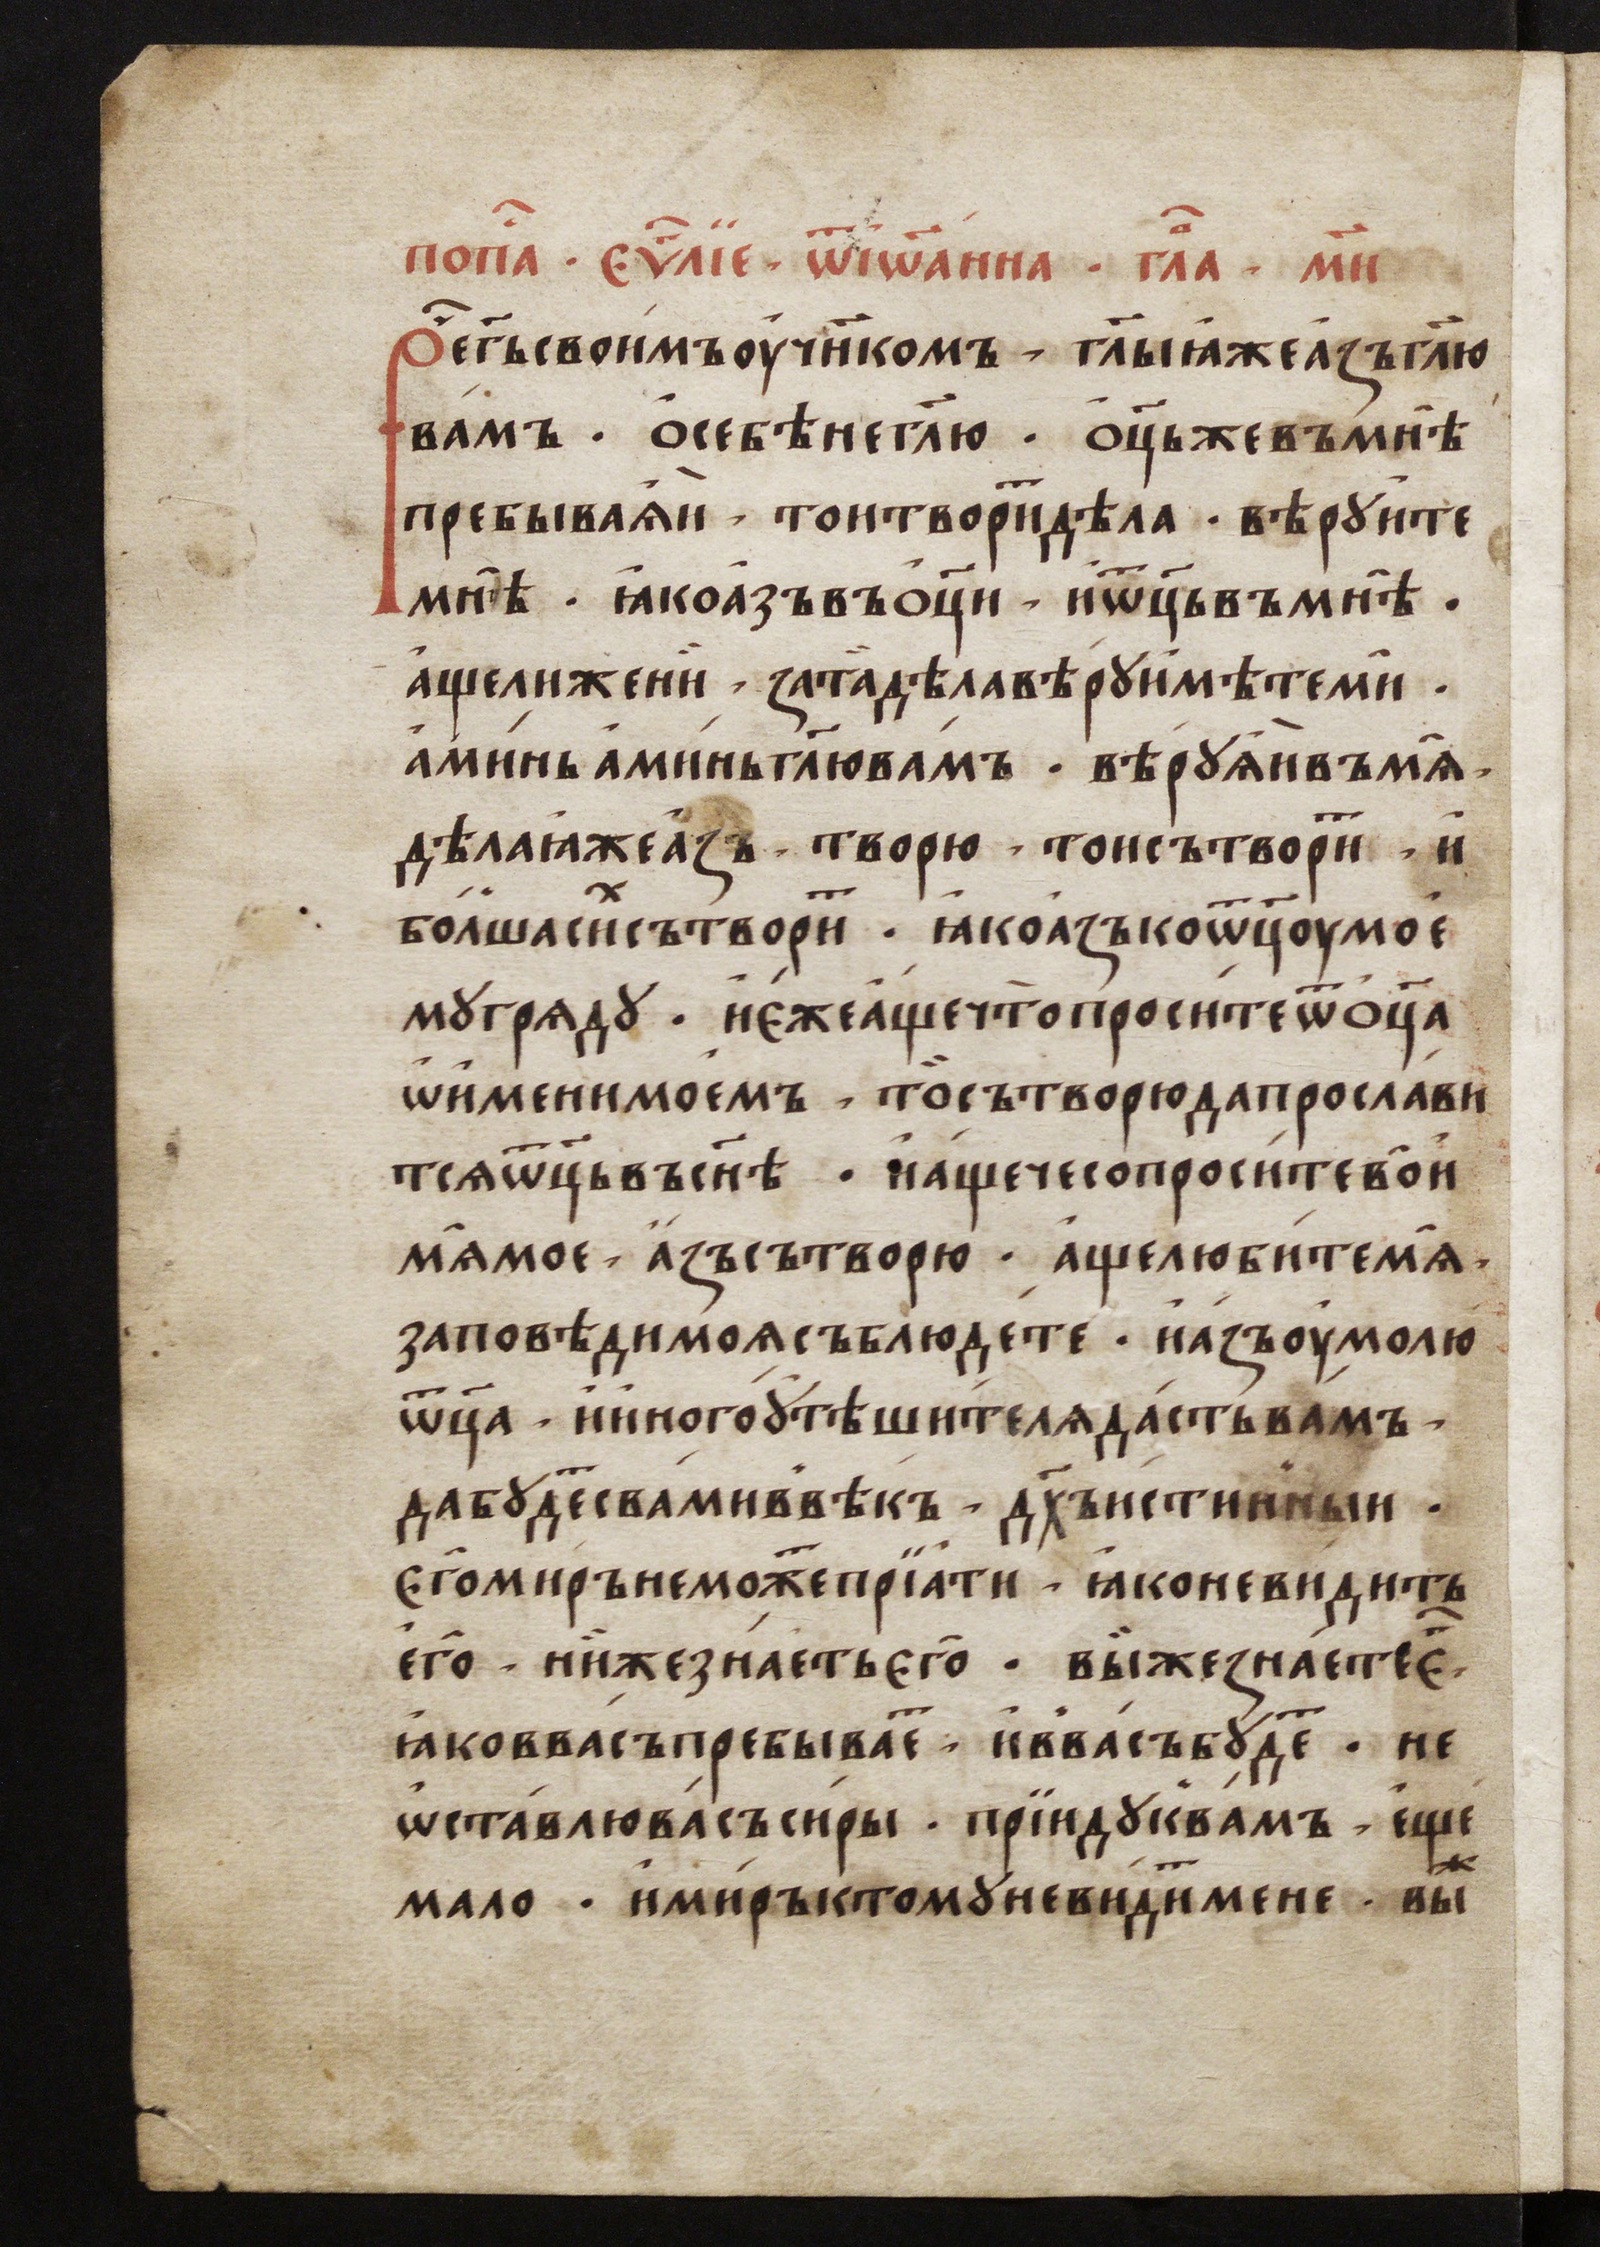 попⷣа҇ · єѵⷢ҇лїе · ѿі҆ѡ҃а́нна · глⷡ҇а · м҃и
Рⷱ҇е гь҃ свои́мъ оу҆чн҃комъ · гл҃ы ꙗ҆же а҆ꙁъ гл҃ю
ва́мъ · ѻ҆ себѣ не гл҃ю · ѻ҆ц҃ь же въ мнѣ̑
пребыва́ѧ҆и · то́и творитⷮ дѣла · вѣрꙋите
мнѣ̑ · ꙗ҆ко а҆зъ въ ѻ҆ц҃и · и҆ ѿц҃ь въ мнѣ̑ ·
а҆ще ли же ни̏ · ꙁа та̏ дѣла вѣрꙋ и҆мѣте ми̑ ·
а҆ми́нь а҆ми́нь гл҃ю ва́мъ · вѣ́рꙋѧ҆и въ мѧ̑ ·
дѣла ꙗ҆же а҆ꙁъ · творю · то́и сътвориⷮ · и҆
бо́лша сиⷯ сътвориⷮ · ꙗ҆ко а҆ꙁъ ко ѿц҃оу мое҆
мꙋ грѧдꙋ · и҆ є҆́же а҆́ще что̀ про́сите ѿ ѻ҆ц҃а
ѡ҆ и҆мени мое҆мъ · то̏ сътворю да просла́ви
тсѧ ѿц҃ь въ сн҃ѣ · и҆ а҆́ще чесо про́сите во̑ и҆
мѧ̑ мое · а҆̏ꙁъ сътворю · а҆́ще люби́те мѧ̑ ·
заповѣди моѧ съблюде́те · и҆ а҆́ꙁъ оу҆молю̀
ѿц҃а · и҆ и҆ного ᲂу҆тѣши́телѧ да́сть ва́мъ ·
да бꙋдеⷮ с ва́ми в вѣ́къ · дх҃ъ и҆́стинныи ·
єго̑ миръ не можеⷮ прїѧ́ти · ꙗ҆ко не ви́дить
е҆го̑ · ни̏же зна́е҆ть єго̑ · вы̏ же ꙁна́е҆те єⷢ҇ ·
ꙗ҆ко в ва́съ пребывае̑ⷮ · и҆ в ва́съ бꙋдеⷮ · не
ѡ҆ста́влю ва́съ си́ры · прїидꙋ к ва́мъ · е҆ще́
мало · и҆ ми́ръ к томꙋ не ви́диⷮ мене · выⷤ